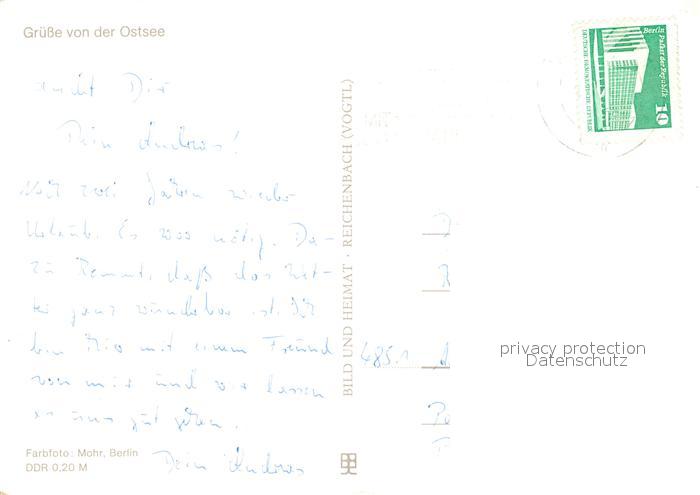 Grüße von der Ostsee
Dir
Dein Andreas!
Nach zwei Jahren wieder
Urlaub. Es war nötig. Da-
zu kommt, daß das Wet-
ter ganz wunderbar ist. Ich
bin hier mit einem Freund
von mir und wir lassen
es uns gut gehen.
Dein Andreas
Farbfoto: Mohr, Berlin
DDR 0,20 M
BILD UND HEIMAT · REICHENBACH (VOGTL)
Berlin Palast der Republik
10
DEUTSCHE DEMOKRATISCHE REPUBLIK
485.1
privacy protection
Datenschutz